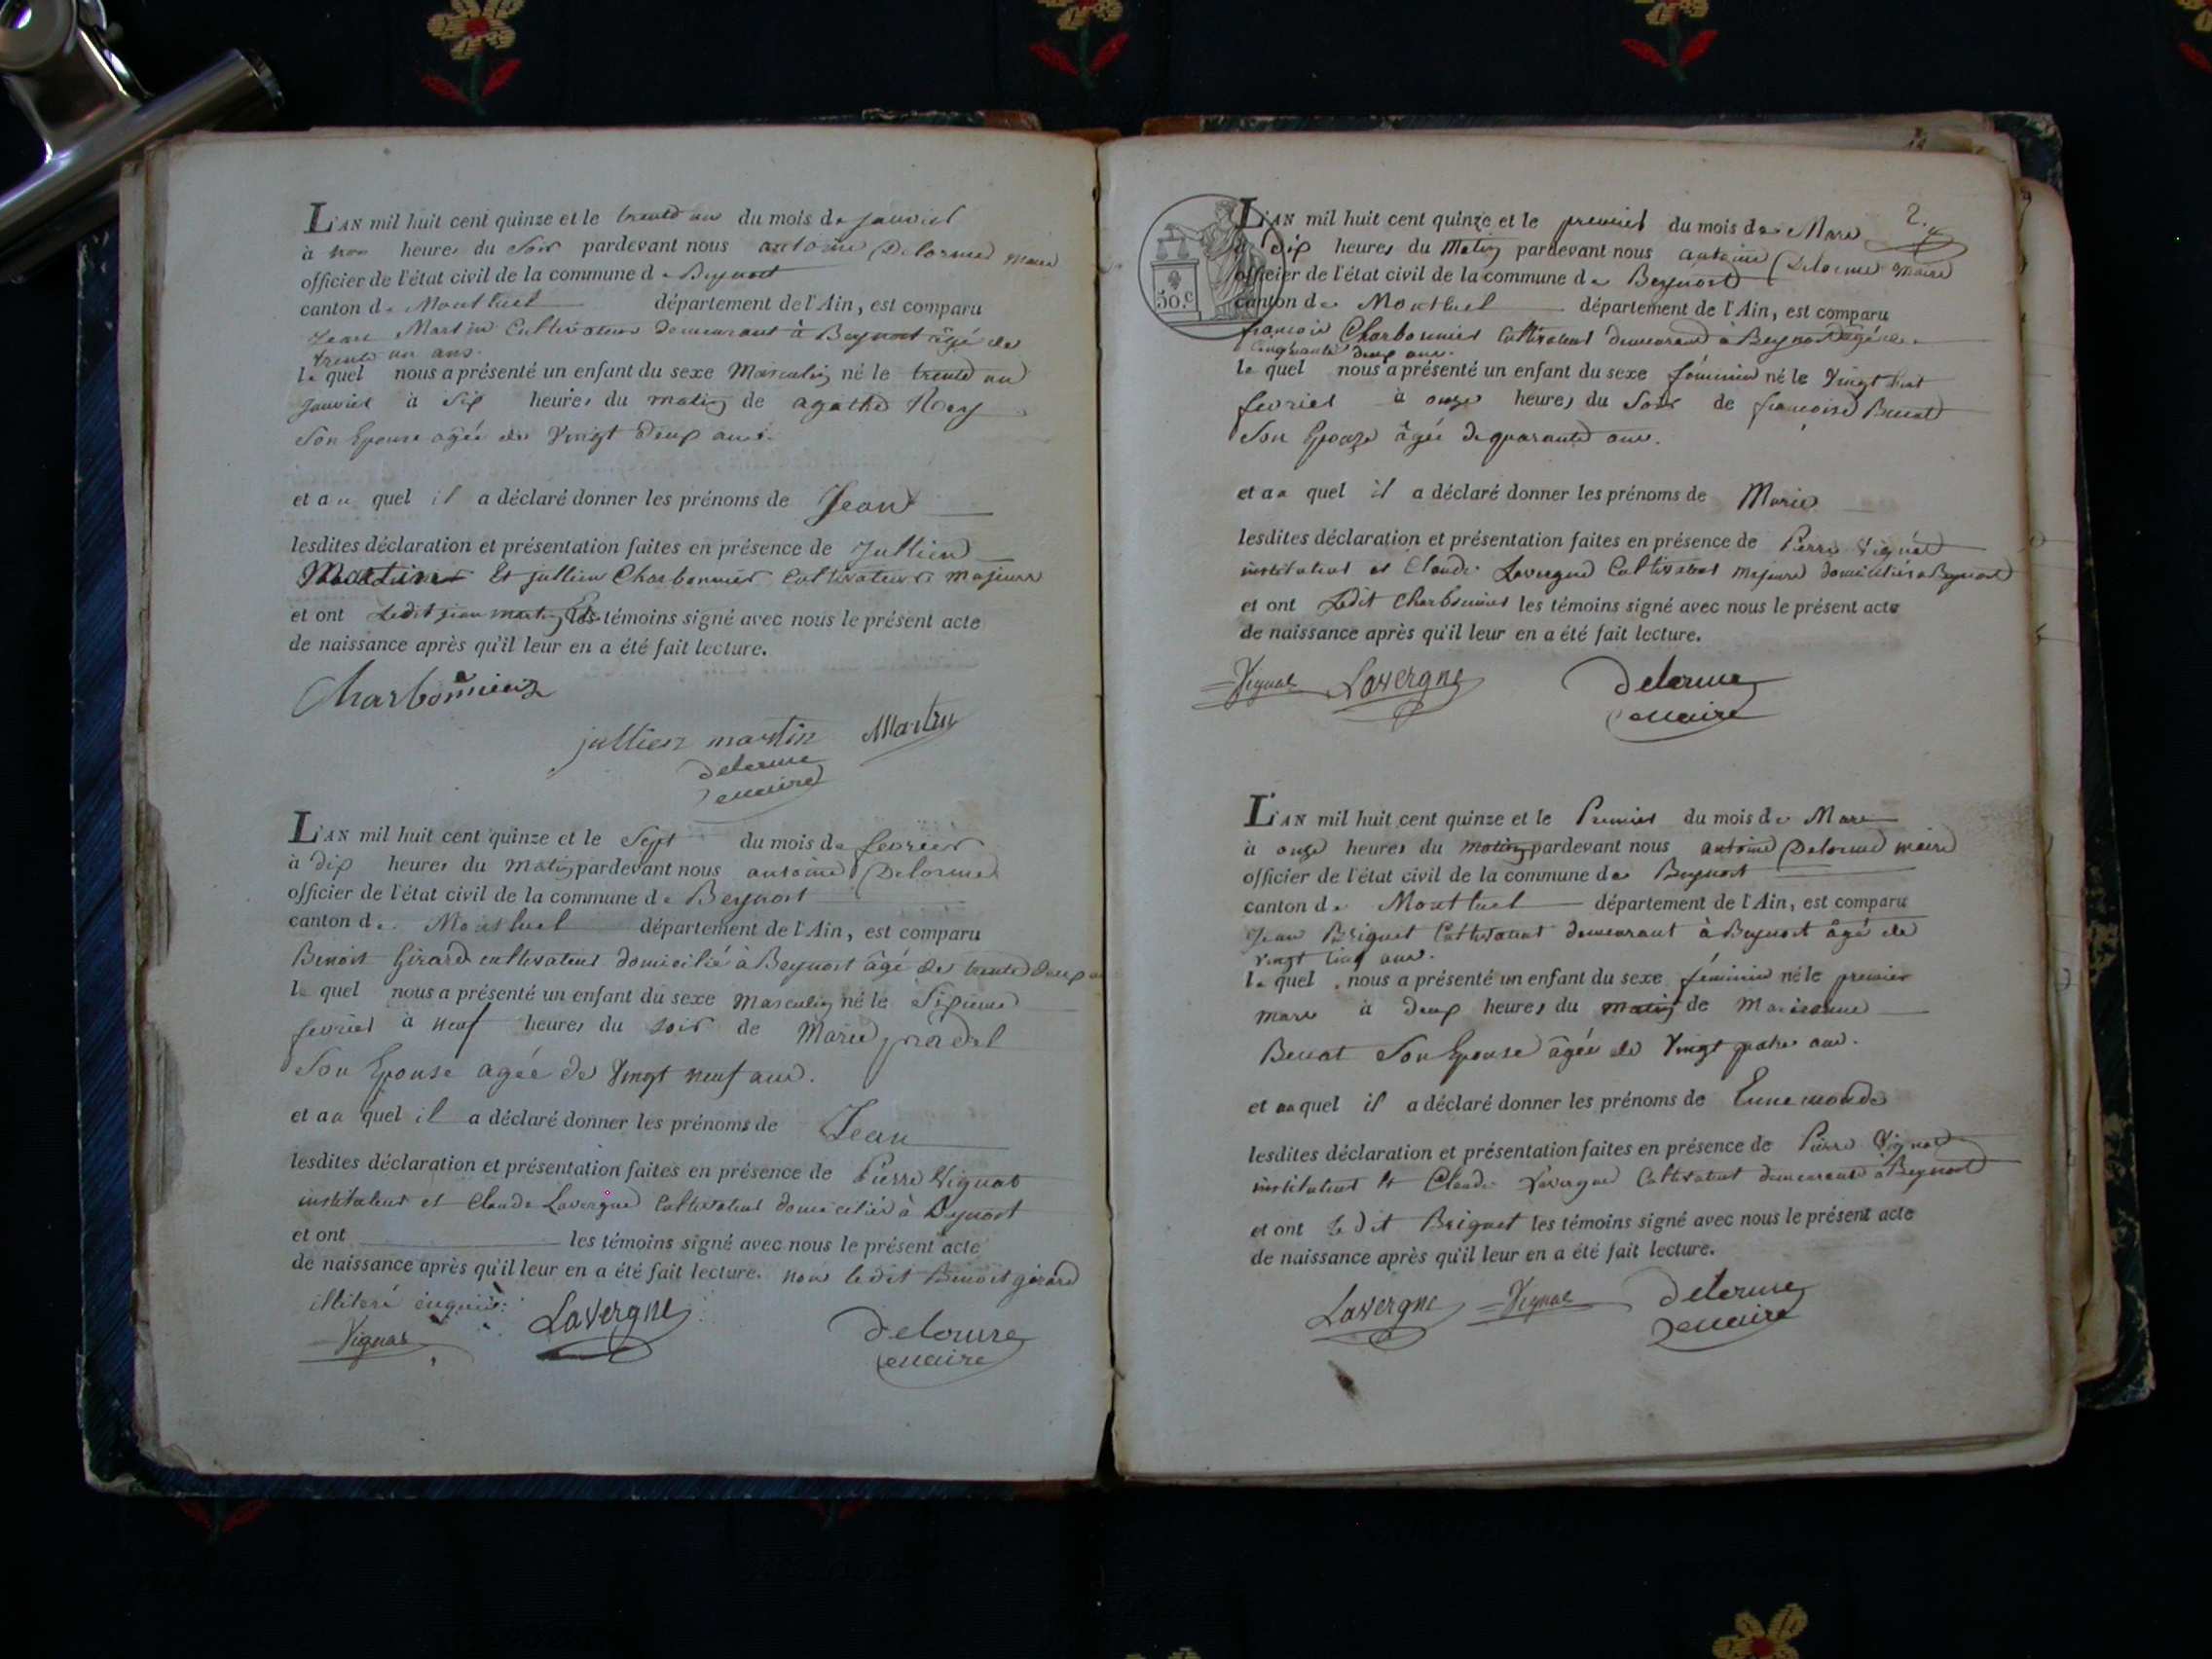 L'AN mil huit cent quinze et le trente un du mois de janvier
à heures du Soir pardevant nous antoine Delorme maire
officier de l'état civil de la commune de Beynost
canton de Montluel département de l'Ain, est comparu
Jean Martin Cultivateur demeurant à Beynost âgé de
trente un ans.
le quel nous a présenté un enfant du sexe Masculin né le trente un
janvier à Six heures du matin de agathe
Son Epouse agée de Vingt deux ans.
et au quel il a déclaré donner les prénoms de Jean
lesdites déclaration et présentation faites en présence de Jullien
Martin Et jullien Charbonnier Cultivateurs majeurs
et ont Ledit jean martin Et les témoins signé avec nous le présent acte
de naissance après qu'il leur en a été fait lecture.
Charbonnier
jullien martin Martin
delorme
maire
L'AN mil huit cent quinze et le Sept du mois de fevrier
à dix heures du Matin pardevant nous antoine Delorme
officier de l'état civil de la commune de Beynost
canton de Montluel département de l'Ain, est comparu
Benoit Girard cultivateur domicilié à Beynost âgé de trente deux
le quel nous a présenté un enfant du sexe Masculin né le Sixieme
fevrier à neuf heures du soir de Marie pradel
Son Epouse agée de Vingt neuf ans.
et au quel il a déclaré donner les prénoms de Jean
lesdites déclaration et présentation faites en présence de Pierre Vignat
instituteur et Claude Lavergne Cultivateur domiciliés à Beynost
et ont les témoins signé avec nous le présent acte
de naissance après qu'il leur en a été fait lecture. non ledit Benoit girard
illiteré enquis.
Vignat Lavergne delorme
maire
2.
L'AN mil huit cent quinze et le premier du mois de Mars
à dix heures du Matin pardevant nous antoine Delorme maire
officier de l'état civil de la commune de Beynost
50.c
canton de Montluel département de l'Ain, est comparu
francois Charbonnier Cultivateur demeurant à Beynost âgé de
Cinquante deux ans.
le quel nous a présenté un enfant du sexe féminin né le Vingt huit
fevrier à onze heures du Soir de françoise Benat
Son Epouze âgée de quarante ans.
et au quel il a déclaré donner les prénoms de Marie
lesdites déclaration et présentation faites en présence de Pierre Vignat
instituteur et Claude Lavergne Cultivateur majeurs domiciliés à Beynost
et ont Ledit Charbonnier les témoins signé avec nous le présent acte
de naissance après qu'il leur en a été fait lecture.
Vignat Lavergne delorme
maire
L'AN mil huit cent quinze et le Premier du mois de Mars
à onze heures du matin pardevant nous antoine Delorme maire
officier de l'état civil de la commune de Beynost
canton de Montluel département de l'Ain, est comparu
Jean Briguet Cultivateur demeurant à Beynost âgé de
vingt cinq ans.
le quel nous a présenté un enfant du sexe féminin né le premier
mars à deux heures du matin de Marieanne
Benat Son Epouse âgée de Vingt quatre ans.
et au quel il a déclaré donner les prénoms de Ennemonde
lesdites déclaration et présentation faites en présence de Pierre Vignat
instituteur et Claude Lavergne Cultivateur demeurant à Beynost
et ont Le dit Briguet les témoins signé avec nous le présent acte
de naissance après qu'il leur en a été fait lecture.
Lavergne Vignat delorme
maire